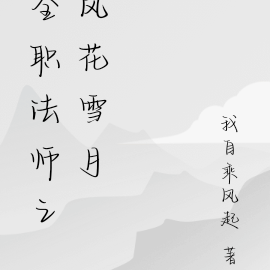 全职法师之
风花雪月
我自乘风起 著